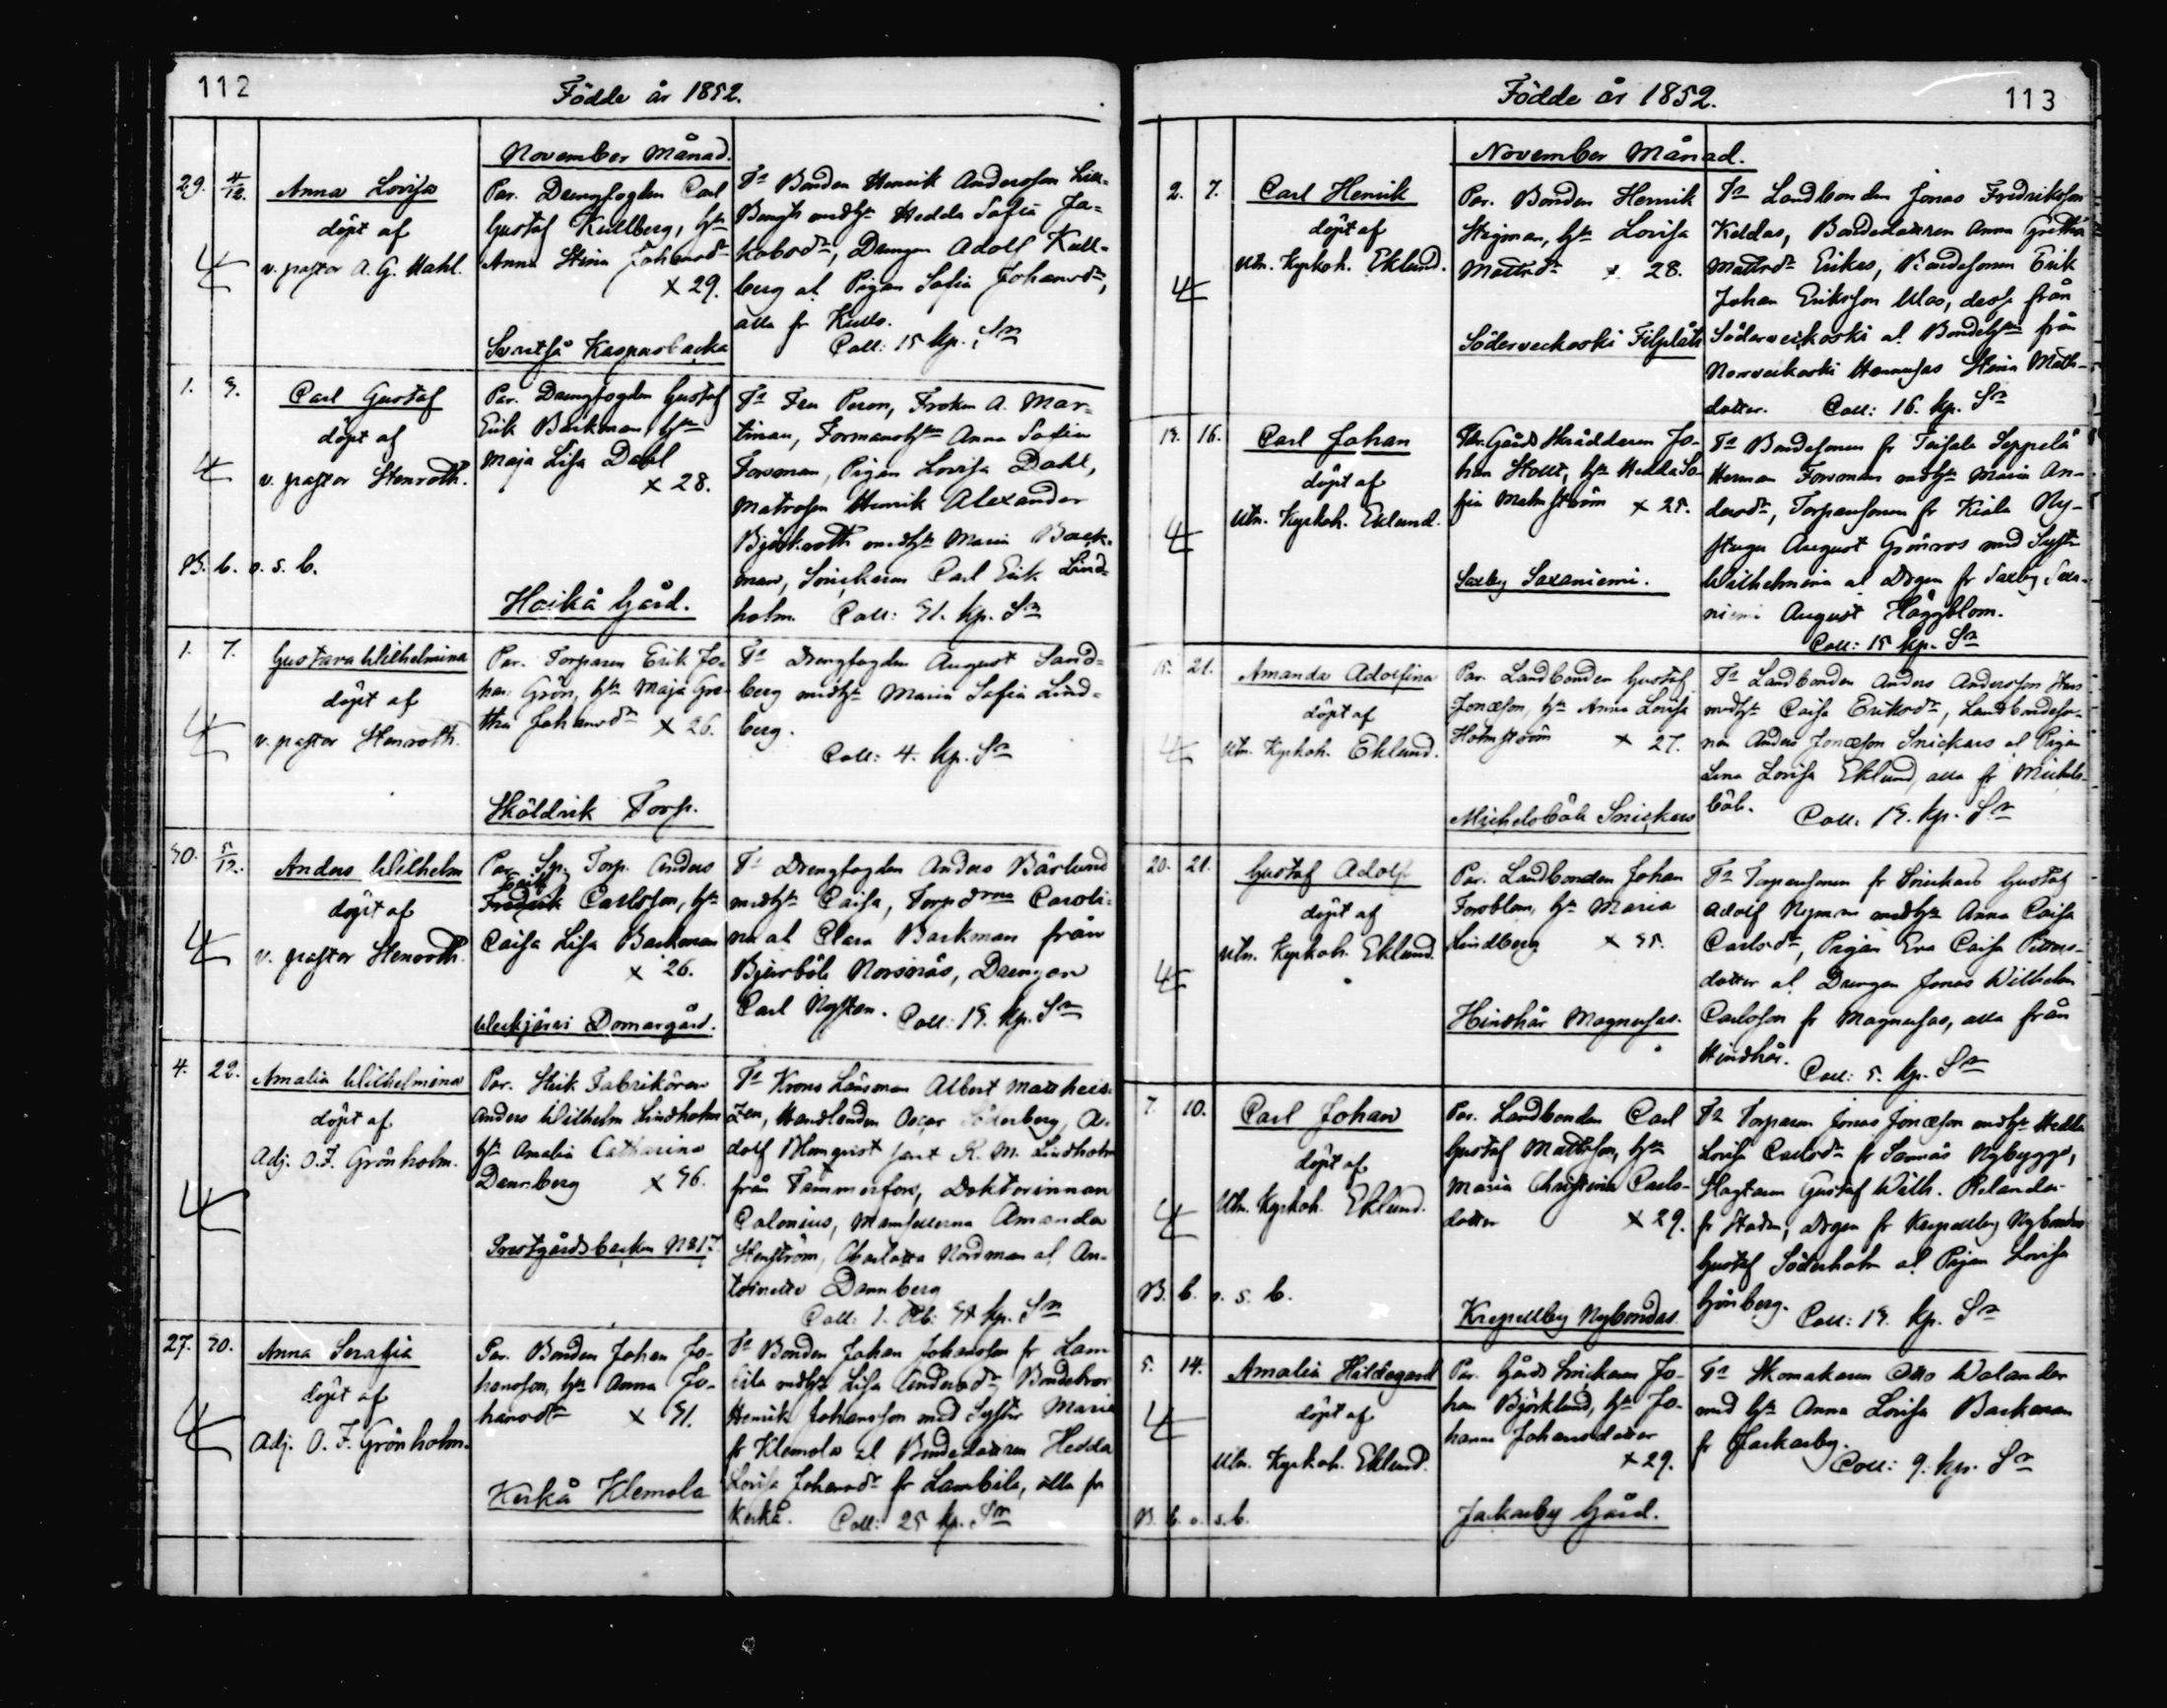 112
Födde år 1852.
November Månad.
29. 4/12. Anna Lovisa
döpt af
v. pastor A. G. Wahl.
Par. Drengfogden Carl
Gustaf Kullberg, h:n
Anna Stina Johansd:r
x 29.
Svartså Kaspersbacka
F:r Bonden Henrik Andersson Lill-
Bengts med h:n Hedda Sofia Ja-
kobsd:r, Drengen Adolf Kull-
berg al. Pigan Sofia Johansd:r,
alla fr Kullo.
Coll: 15 kp. S:r
1. 3. Carl Gustaf
döpt af
v. pastor Stenroth.
B. b. o. s. b.
Par. Drengfogden Gustaf
Erik Backman, h:n
Maja Lisa Dahl
x 28.
Haikå Gård.
F:r Fru Peron, Fröken A. Mar-
tinau, Formansh:n Anna Sofia
Forsman, Pigan Lovisa Dahl,
Matrosen Henrik Alexander
Björkroth med h:n Maria Back-
man, Snickaren Carl Erik Lind-
holm. Coll: 31. kp. S:r
1. 7. Gustava Wilhelmina
döpt af
v. pastor Stenroth.
Par. Torparen Erik Jo-
han Grön, h:n Maja Gre-
tha Johansd:r x 26.
Sköldvik Torp.
F:r Drengfogden August Sand-
berg med h:n Maria Sofia Lind-
berg.
Coll: 4. kp. S:r
30. 5/12. Anders Wilhelm
döpt af
v. pastor Stenroth.
Par. Sp. Torp. Anders
Fredrik Carlsson, h:n
Caisa Lisa Backman
x 26.
Weckjärvi Domargård.
F:r Drengfogden Anders Bärlund
med h:n Caisa, Torpd:rna Caroli-
na al. Clara Backman från
Bjurböle Norsnäs, Drengen
Carl Nysten. Coll: 13. kp. S:r
4. 22. Amalia Wilhelmina
döpt af
Adj. O. F. Grönholm.
Par. Stik Fabrikören
Anders Wilhelm Lindholm
h:n Amalia Catharina
Dannberg x 36.
Prestgårdsbacken N:817.
F:r Krono Länsman Albert Mattheis-
zen, Handlanden Oscar Söderberg, A-
dolf Blomqvist samt R. M. Lindholm
från Tammerfors, Doktorinnan
Calonius, Mamsellerna Amanda
Stenström, Charlotta Nordman al. An-
toinette Dannberg
Coll: 1. Rb: 34 kp. S:r
27. 30. Anna Serafia
döpt af
Adj. O. F. Grönholm.
Par. Bonden Johan Jo-
hansson, h:n Anna Jo-
hansd:r x 31.
Kerkå Klemola
F:r Bonden Johan Johansson fr Lam
bila med h:n Lisa Andersd:r Bondebror
Henrik Johansson med Syster Maria
fr Klemola al Bondedottren Hedda
Lovisa Johansd:r fr Lambila, alla fr
Kerkå. Coll: 25 kp. S:r
Födde år 1852.
113
November Månad.
2. 7. Carl Henrik
döpt af
Utn. Kyrkoh. Eklund.
Par. Bonden Henrik
Stigman, h:n Lovisa
Mattsd:r x 28.
Söderveckoski Filplåts
F:r Landbonden Jonas Fredriksson
Keldas, Bondedottren Anna Gretha
Mattsd:r Erikas, Bondesonen Erik
Johan Eriksson Ulas, dessa från
Söderveckoski al. Bondeh:n från
Norrveckoski Hannusas Stina Matts-
dotter. Coll: 16. kp. S:r
13. 16. Carl Johan
döpt af
Utn. Kyrkoh. Eklund.
Par. Gårds Skräddaren Jo-
han Stolt, h:n Hedda So-
fia Malmström x 25.
Saxby Saxaniemi.
F:r Bondesonen fr Teisala Seppelä
Herman Forsman med h:n Maria An-
dersd:r, Torparesonen fr Kiala Ny-
stuga August Grönros med Syst:r
Wilhelmina al. Drgen fr Saxby Saxa-
niemi August Häggblom.
Coll: 15 kp. S:r
15. 21. Amanda Adolfina
döpt af
Utn. Kyrkoh. Eklund.
Par. Landbonden Gustaf
Jonasson, h:n Anna Lovisa
Holmström x 27.
Michelsböle Snickars
F:r Landbonden Anders Andersson
med h:n Caisa Eriksd:r, Landbondeso-
nen Anders Jonasson Snickars al Pigan
Lena Lovisa Eklund, alla fr Michels-
böle. Coll. 13. kp. S:r
20. 21. Gustaf Adolf
döpt af
Utn. Kyrkoh. Eklund.
Par. Landbonden Johan
Forsblom, h:n Maria
Lindberg x 35.
Hindhår Magnusas.
F:r Torparesonen fr Snickars Gustaf
Adolf Nyman med h:n Anna Caisa
Carlsd:r, Pigan Eva Caisa Petters-
dotter al. Drengen Jonas Wilhelm
Carlsson fr Magnusas, alla från
Hindhår. Coll: 5. kp. S:r
7. 10. Carl Johan
döpt af
Utn. Kyrkoh. Eklund.
B. b. o. s. b.
Par. Landbonden Carl
Gustaf Mattsson, h:n
Maria Christina Carls-
dotter x 29.
Krepelby Nybondas.
F:r Torparen Jonas Jonasson med h:n Hedda
Lovisa Carlsd:r fr Sannäs Nybygge,
Slagtaren Gustaf Wilh. Relander
fr Staden, Drgen fr Krepelby Nybondas
Gustaf Söderholm al. Pigan Lovisa
Grönberg. Coll: 13. kp. S:r
5. 14. Amalia Hildegard
döpt af
Utn. Kyrkoh. Eklund.
B. b. o. s. b.
Par. Gårds Snickaren Jo-
han Björklund, h:n Jo-
hanna Johansdotter
x 29.
Jackarby Gård.
F:r Skomakaren Otto Walander
med h:n Anna Lovisa Backman
fr Jackarby.
Coll: 9. kp. S:r